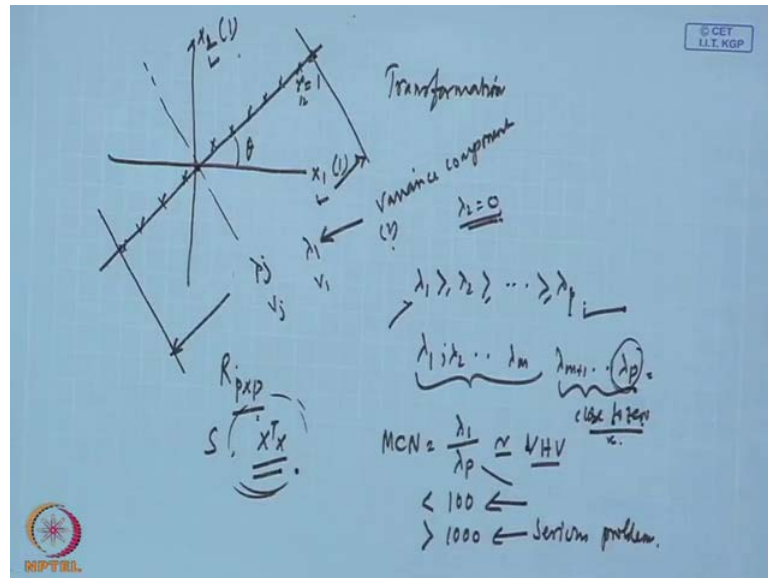 x₂(1)
© CET
I.I.T. KGP
r₁₂=1
Transformation
θ
x₁(1)
Variance component
λ₂=0
(2)
λj λ₁
Vj V₁
λ₁ ≥ λ₂ ≥ ... ≥ λp
λ₁, λ₂ .. λm λm+1 .. λp =
close to zero
Rp×p
S. XᵀX
MCN = λ₁/λp ≃ VHV
< 100 ←
> 1000 ← Serious problem.
NPTEL